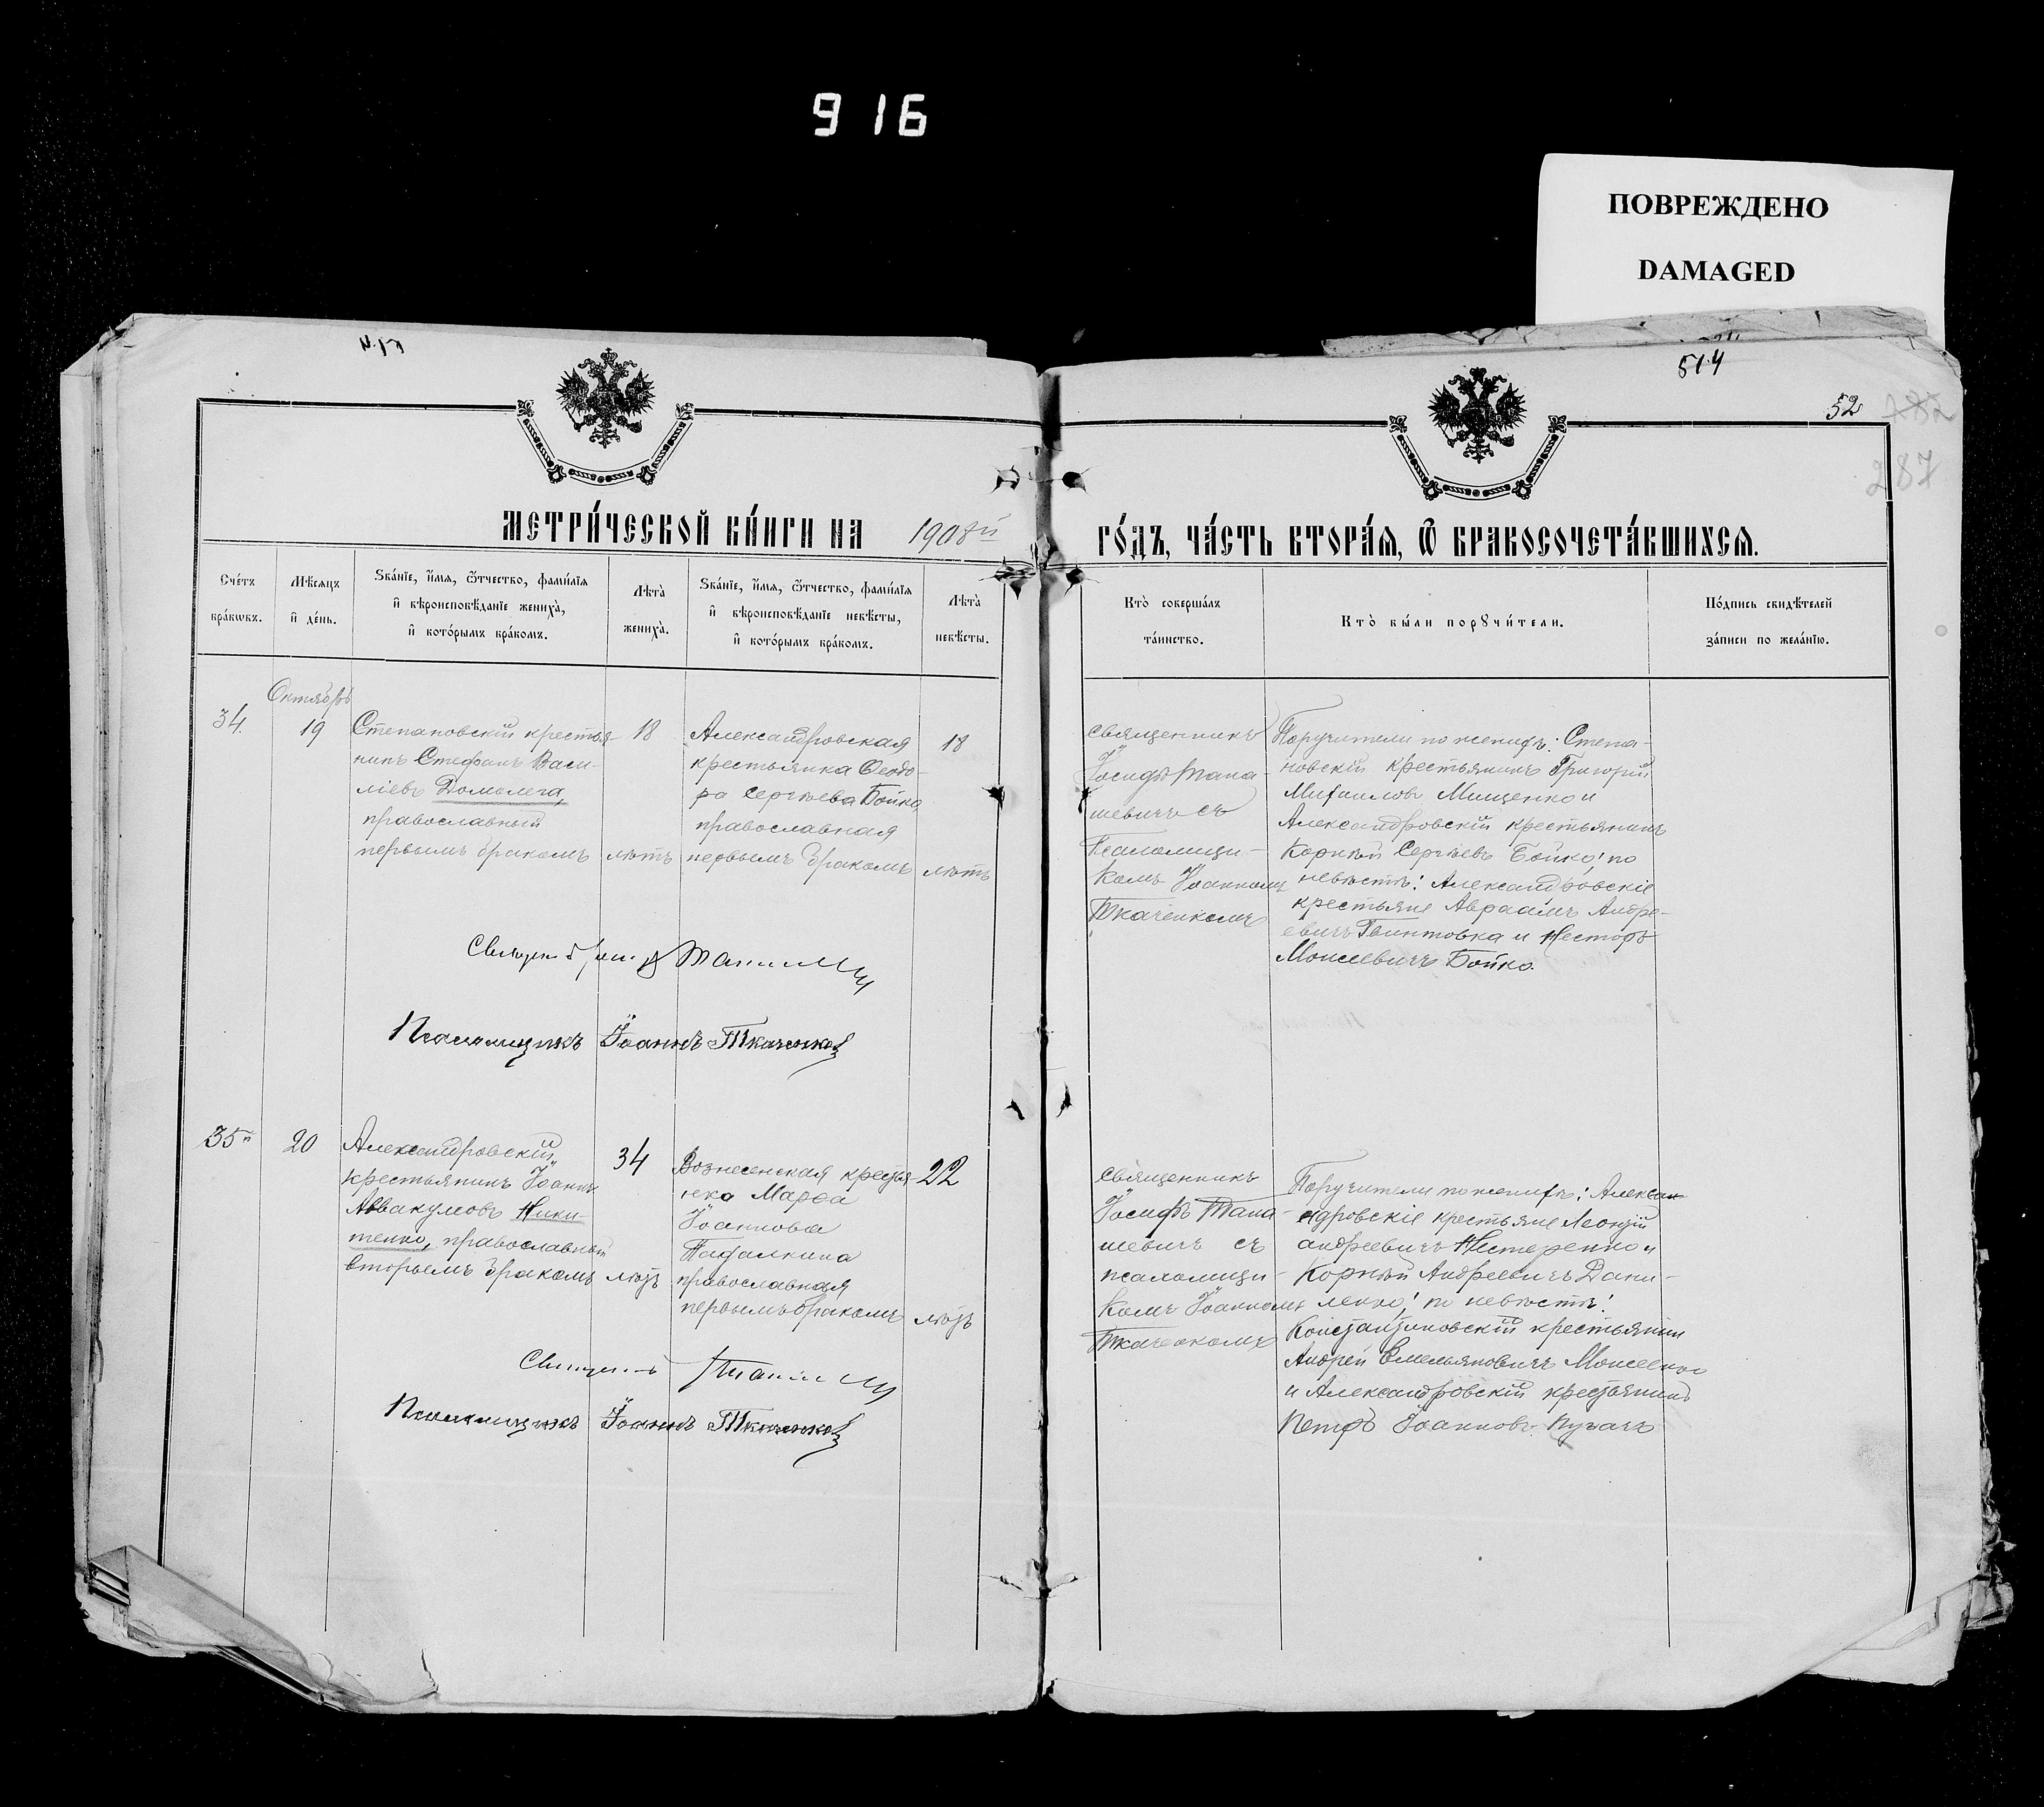 916
ПОВРЕЖДЕНО
DAMAGED
514
514
52 282
287
МЕТРИ́ЧЕСКОЙ КНИ́ГИ НА 1908й
ГО́ДЪ, ЧА́СТЬ ВТОРА́Я, Ѿ БРАКОСОЧЕТА́ВШИХСЯ.
Счетъ бра́кωвъ.
Мѣсяцъ и҆ де́нь.
Ѕва́нїе, и҆́мя, ѻ҆́тчество, фами́лїя и҆ вѣроисповѣ́данїе жениха̀, и҆ кото́рымъ бра́комъ.
Лѣта̀ жениха̀.
Ѕва́нїе, и҆́мя, ѻ҆́тчество, фами́лїя и҆ вѣроисповѣ́данїе невѣ́сты, и҆ кото́рымъ бра́комъ.
Лѣта̀ невѣ́сты.
Кто̀ соверша́лъ та́инство.
Кто̀ бы́ли порꙋчи́тели.
По́дпись свидѣ́телей за́писи по жела́нїю.
Октябрь
34.
19
Степановскій крестья-
нинъ Стефанъ Васи-
ліевъ Домалега,
православный
первымъ бракомъ
18
лѣтъ
Александровская
крестьянка Ѳеодо-
ра Сергѣева Бойко
православная
первымъ бракомъ
18
лѣтъ
священникъ
Іосифъ Тана-
шевичъ съ
Псаломщи-
комъ Іоанномъ
Ткаченкомъ
Поручители по женихѣ: Степа-
новскій крестьянинъ Григорій
Михаиловъ Мищенко и
Александровскій крестьянинъ
Корнѣй Сергѣевъ Бойко; по
невѣстѣ: Александровскіе
крестьяне Авраамъ Андре-
евичъ Гвинтовка и Несторъ
Моисеевичъ Бойко.
Псаломщикъ Іоаннъ Ткаченко
35й
20
Александровскій
крестьянинъ Іоаннъ
Аввакумовъ Ники-
тенко, православный
вторымъ бракомъ
34
лѣтъ
Вознесенская крестья
нка Марѳа
Іоаннова
православная
первымъ бракомъ
22
лѣтъ
священникъ
Іосифъ Тана-
шевичъ съ
псаломщи-
комъ Іоанномъ
Ткаченкомъ
Поручители по женихѣ: Алексан
ндровскіе крестьяне Леонтій
Андреевичъ Нестеренко и
Корнѣй Андреевичъ Дани-
ленко; по невѣстѣ:
Константиновскій крестьянин
Андрей Емельяновичъ Моисеенко
и Александровскій крестьянинъ
Петръ Іоанновъ Пугачъ
Псаломщикъ Іоаннъ Ткаченко